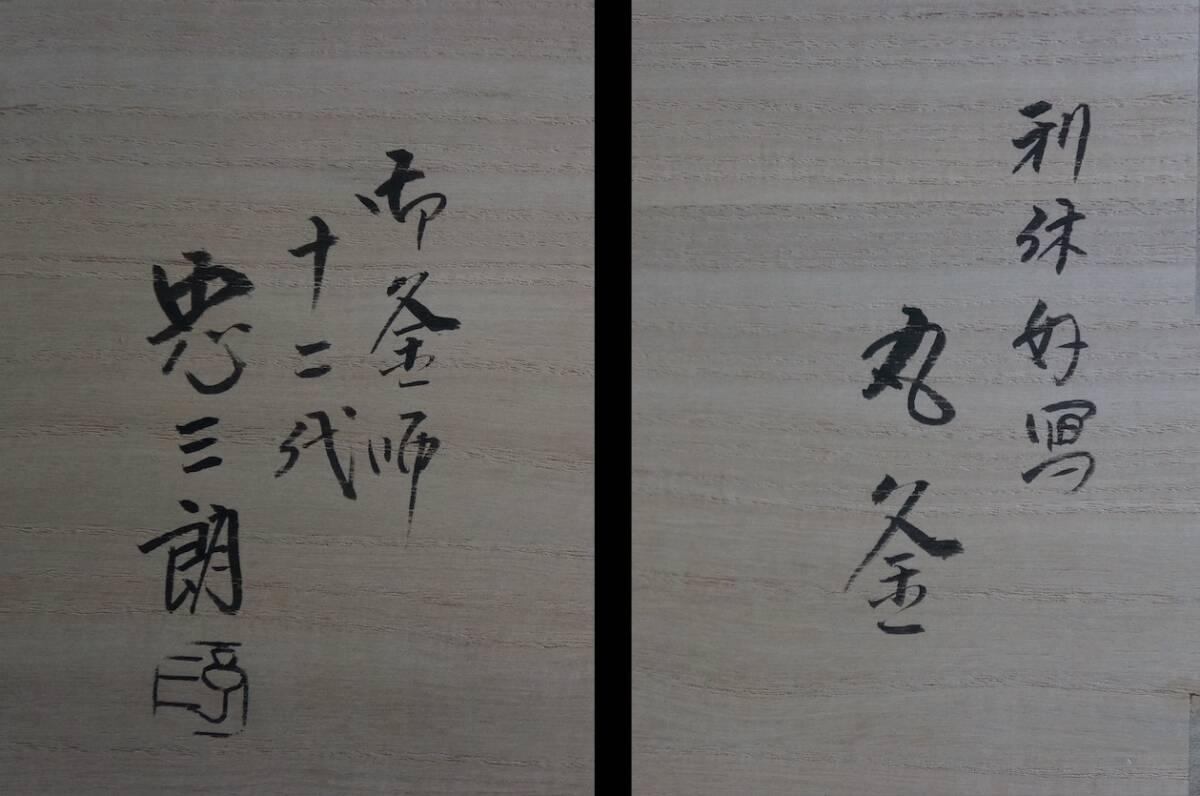 利休好写
丸釜
御釜師
十二代
忠三朗